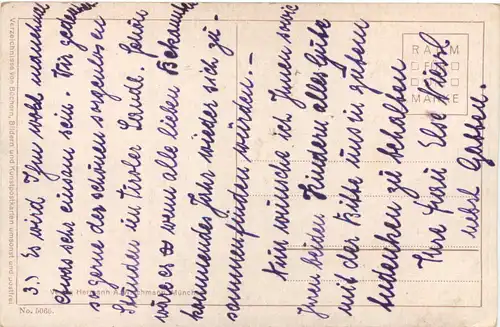 3.) Es wird Ihnen wohl manchmal
etwas sehr einsam sein. Ich gedenke
so gerne der schönen sorgenlosen
Stunden im Tiroler Lande. Fein
wäre es wenn alle lieben Bekannten
kommendes Jahr wieder sich zu-
sammenfinden würden. –
Nun wünsche ich Ihnen sowie
Ihren beiden Kindern alles Gute
mit der Bitte uns in gutem
Andenken zu behalten
Ihre Frau Else
nebst Gatten.
RAUM
FÜR
DIE
MARKE
Verzeichnisse von Büchern, Bildern und Kunstpostkarten umsonst und postfrei
Hermann A. Wiechmann München
No. 5065.